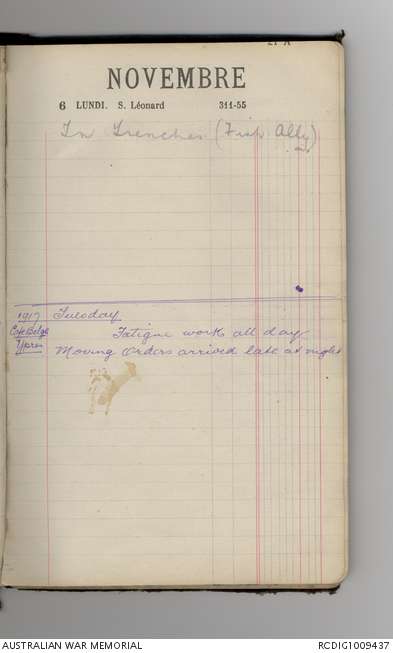 NOVEMBRE
6 LUNDI. S. Léonard 311-55
In Trenches (Fish Ally)
1917 Tuesday
Cafe Belge Fatigue work all day
Ypres Moving Orders arrived late at night
AUSTRALIAN WAR MEMORIAL RCDIG1009437